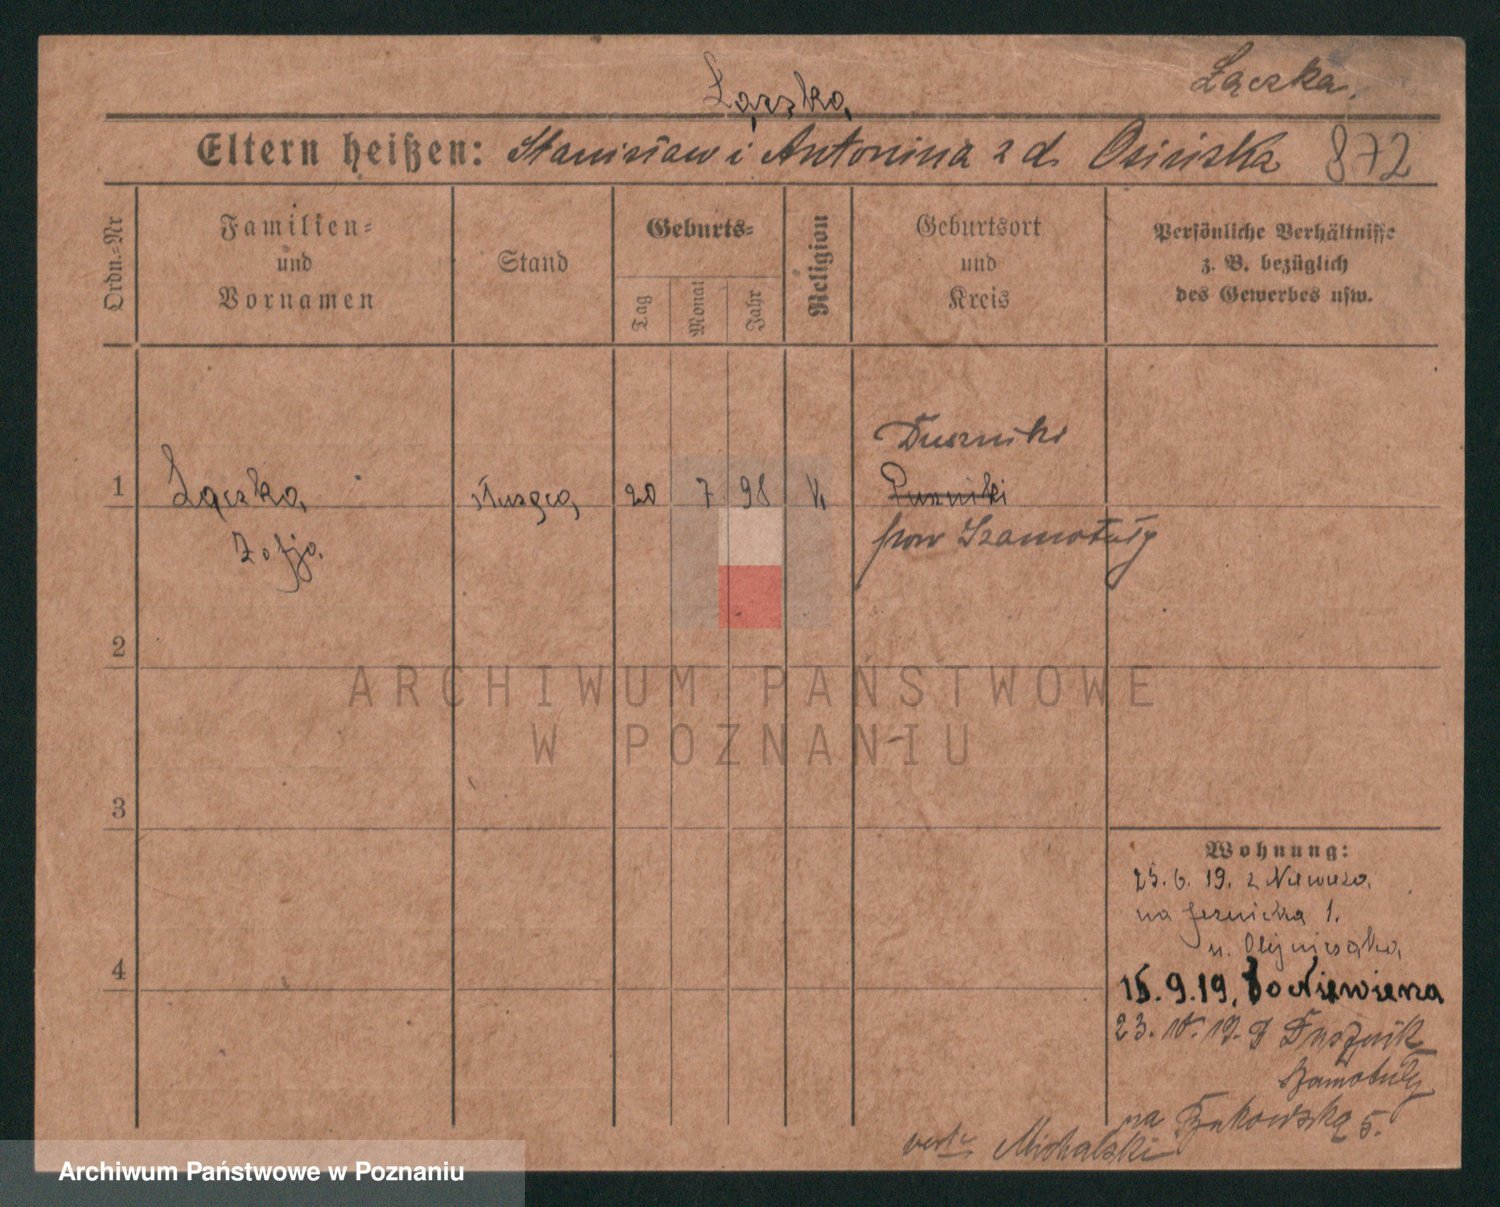 Łączka
Łączka.
Eltern heißen: Stanisław i Antonina z d. Osińska 872
Ordn.-Nr
Familien-
und
Vornamen
Stand
Geburts-
Tag
Monat
Jahr
Religion
Geburtsort
und
Kreis
Persönliche Verhältnisse
z. B. bezüglich
des Gewerbes usw.
Duszniki
1 Łączka służąca 20 7 98 k Puszniki
Zofja. pow Szamotuły
2
ARCHIWUM PAŃSTWOWE
W POZNANIU
3
Wohnung:
25. 6. 19. z Niewierza
na Jeżnicka 1.
u. Olejniczaka
4
15. 9. 19. Do Niewierza
23. 10. 19. z Dusznik
Szamotuły
na Bukowską 5.
verte Michalski
Archiwum Państwowe w Poznaniu